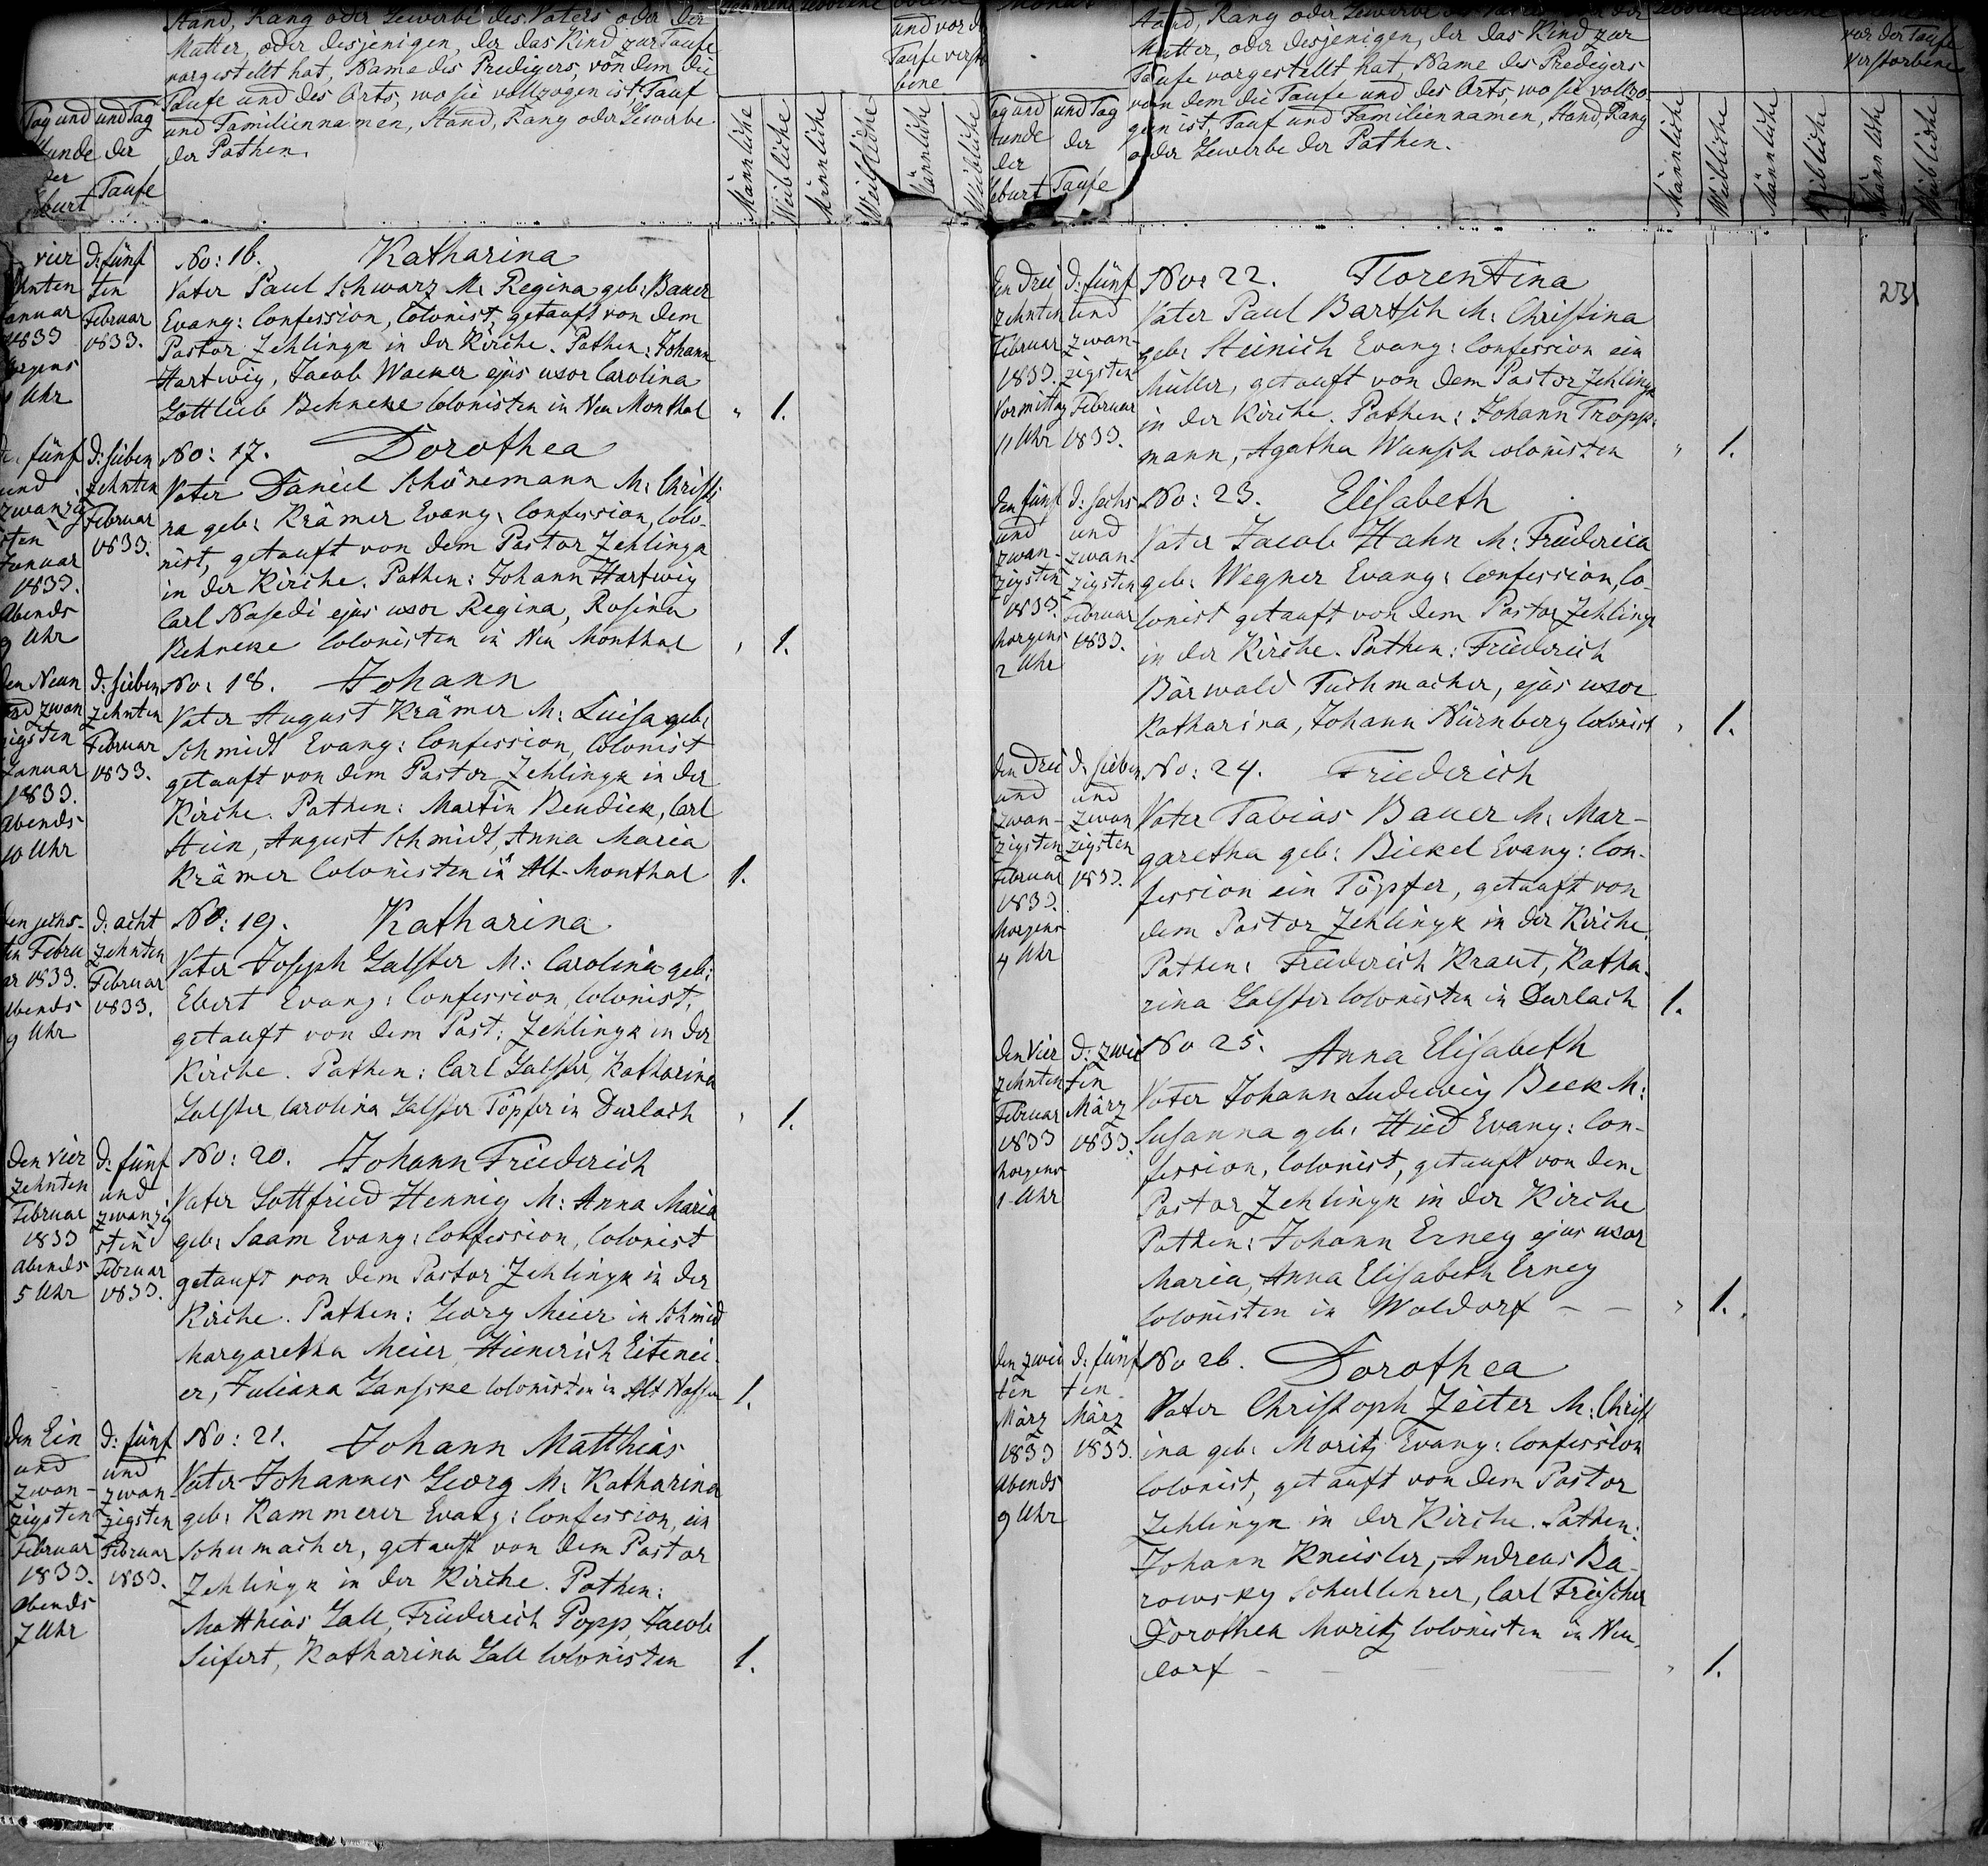 Stand, Rang oder Gewerbe des Vaters oder der
Mutter, oder desjenigen, der das Kind zur Taufe
vorgestellt hat, Name des Predigers, von dem die
Taufe und des Orts, wo sie vollzogen ist, Tauf
und Familiennamen, Stand, Rang oder Gewerbe
der Pathen.
Tag und
Stunde
der
Geburt
und Tag
der
Taufe
und vor d
Taufe versto
bene
Männliche
Weibliche
Männliche
Weibliche
Männliche
Weibliche
vier
zehnten
Januar
1833
Morgens
Uhr
D: fünf
ten
Februar
1833.
No: 16. Katharina
Vater Paul Schwarz M: Regina geb: Bauer
Evang: Confession, Colonist, getauft von dem
Pastor Zehlingk in der Kirche. Pathen: Johann
Hartwig, Jacob Wacker ejus uxor Carolina
Gottlieb Behneke Colonisten in Neu Monthal " 1.
fünf
und
zwanzig
sten
Januar
1833.
Abends
9 Uhr
D: sieben
zehnten
Februar
1833.
No: 17. Dorothea
Vater Daniel Schönemann M: Christi
na geb: Krämer Evang: Confession, Colo-
nist, getauft von dem Pastor Zehlingk
in der Kirche. Pathen: Johann Hartwig
Carl Nasedi ejus uxor Regina, Rosina
Behneke Colonisten in Neu Monthal " 1.
den Neun
und zwan
zigsten
Januar
1833.
Abends
10 Uhr
D: sieben
zehnten
Februar
1833.
No: 18. Johann
Vater August Krämer M: Luisa geb:
Schmidt Evang: Confession, Colonist
getauft von dem Pastor Zehlingk in der
Kirche. Pathen: Martin Bendick, Carl
Stein, August Schmidt, Anna Maria
Krämer Colonisten in Alt-Monthal 1.
den sechs-
ten Febru
ar 1833.
Abends
9 Uhr
D: acht
zehnten
Februar
1833.
No: 19. Katharina
Vater Joseph Galster M: Carolina geb:
Ebert Evang: Confession, Colonist,
getauft von dem Past: Zehlingk in der
Kirche. Pathen: Carl Galster, Katharina
Galster Carolina Galster Töpfer in Durlach " 1.
Den vier
zehnten
Februar
1833
Abends
5 Uhr
D: fünf
und
zwanzig
sten
Februar
1833.
No: 20. Johann Friederich
Vater Gottfried Hennig M: Anna Maria
geb: Saam Evang: Confession, Colonist
getauft von dem Pastor Zehlingk in der
Kirche. Pathen: Georg Meier in Schmied
Margaretha Meier, Heinerich Eitenei-
er, Juliana Ganske Colonisten in Alt Nassau 1.
den Ein
und
zwan-
zigsten
Februar
1833.
Abends
7 Uhr
D: fünf
und
zwan-
zigsten
Februar
1833.
No: 21. Johann Matthias
Vater Johannes Georg M: Katharina
geb: Kammerer Evang: Confession, ein
Schumacher, getauft von dem Pastor
Zehlingk in der Kirche. Pathen:
Matthias Gall, Friederich Popp Jacob
Seifert, Katharina Gall Colonisten 1.
Stand, Rang oder Gewerbe des Vaters oder der
Mutter, oder desjenigen, der das Kind zur
Taufe vorgestellt hat, Name des Predigers
von dem die Taufe und des Orts, wo sie vollzo-
gen ist, Tauf und Familiennamen, Stand, Rang
oder Gewerbe der Pathen.
Tag und
Stunde
der
Geburt
und Tag
der
Taufe
vor der Taufe
Verstorbene
Männliche
Weibliche
Männliche
Weibliche
Männliche
Weibliche
23
Den Drei
zehnten
Februar
1833.
Vormittag
11 Uhr
D: fünf
und
zwan-
zigsten
Februar
1833.
No: 22. Florentina
Vater Paul Bartsch M: Christina
geb: Steinich Evang: Confession ein
Müller, getauft von dem Pastor Zehlingk
in der Kirche. Pathen: Johann Tropp-
mann, Agatha Wunsch Colonisten " 1.
den fünf
und
zwan-
zigsten
1833.
Morgens
2 Uhr
D: sechs
und
zwan-
zigsten
Februar
1833.
No: 23. Elisabeth
Vater Jacob Hahn M: Friederica
geb: Wegner Evang: Confession, Co-
lonist getauft von dem Pastor Zehlingk
in der Kirche. Pathen: Friederich
Bärwald Tuchmacher, ejus uxor
Katharina, Johann Nürnberg Colonist " 1.
den Drei
und
zwan-
zigsten
Februar
1833.
Morgens
4 Uhr
D: sieben
und
zwan
zigsten
1833.
No: 24. Friederich
Vater Tabias Bauer M: Mar-
garetha geb: Bickel Evang: Con-
fession ein Töpfer, getauft von
dem Pastor Zehlingk in der Kirche.
Pathen: Friederich Kraut, Katha-
rina Galster Colonisten in Durlach 1.
den vier
zehnten
Februar
1833
Morgens
1 Uhr
D: zwei
ten
März
1833.
No 25. Anna Elisabeth
Vater Johann Ludewig Beek M:
Susanna geb: Hied Evang: Con-
fession, Colonist, getauft von dem
Pastor Zehlingk in der Kirche
Pathen: Johann Erney ejus uxor
Maria, Anna Elisabeth Erney
Colonisten in Waldorf - - " 1.
den zwei
ten
März
1833
Abends
9 Uhr
D: fünf
ten
März
1833.
No 26. Dorothea
Vater Christoph Zeiter M: Christ
ina geb: Moritz Evang: Confession
Colonist, getauft von dem Pastor
Zehlingk in der Kirche. Pathen:
Johann Kneisler, Andreas Ba-
rowsky Schullehrer, Carl Freischer
Dorothea Moritz Colonisten in Neu-
dorf - " 1.